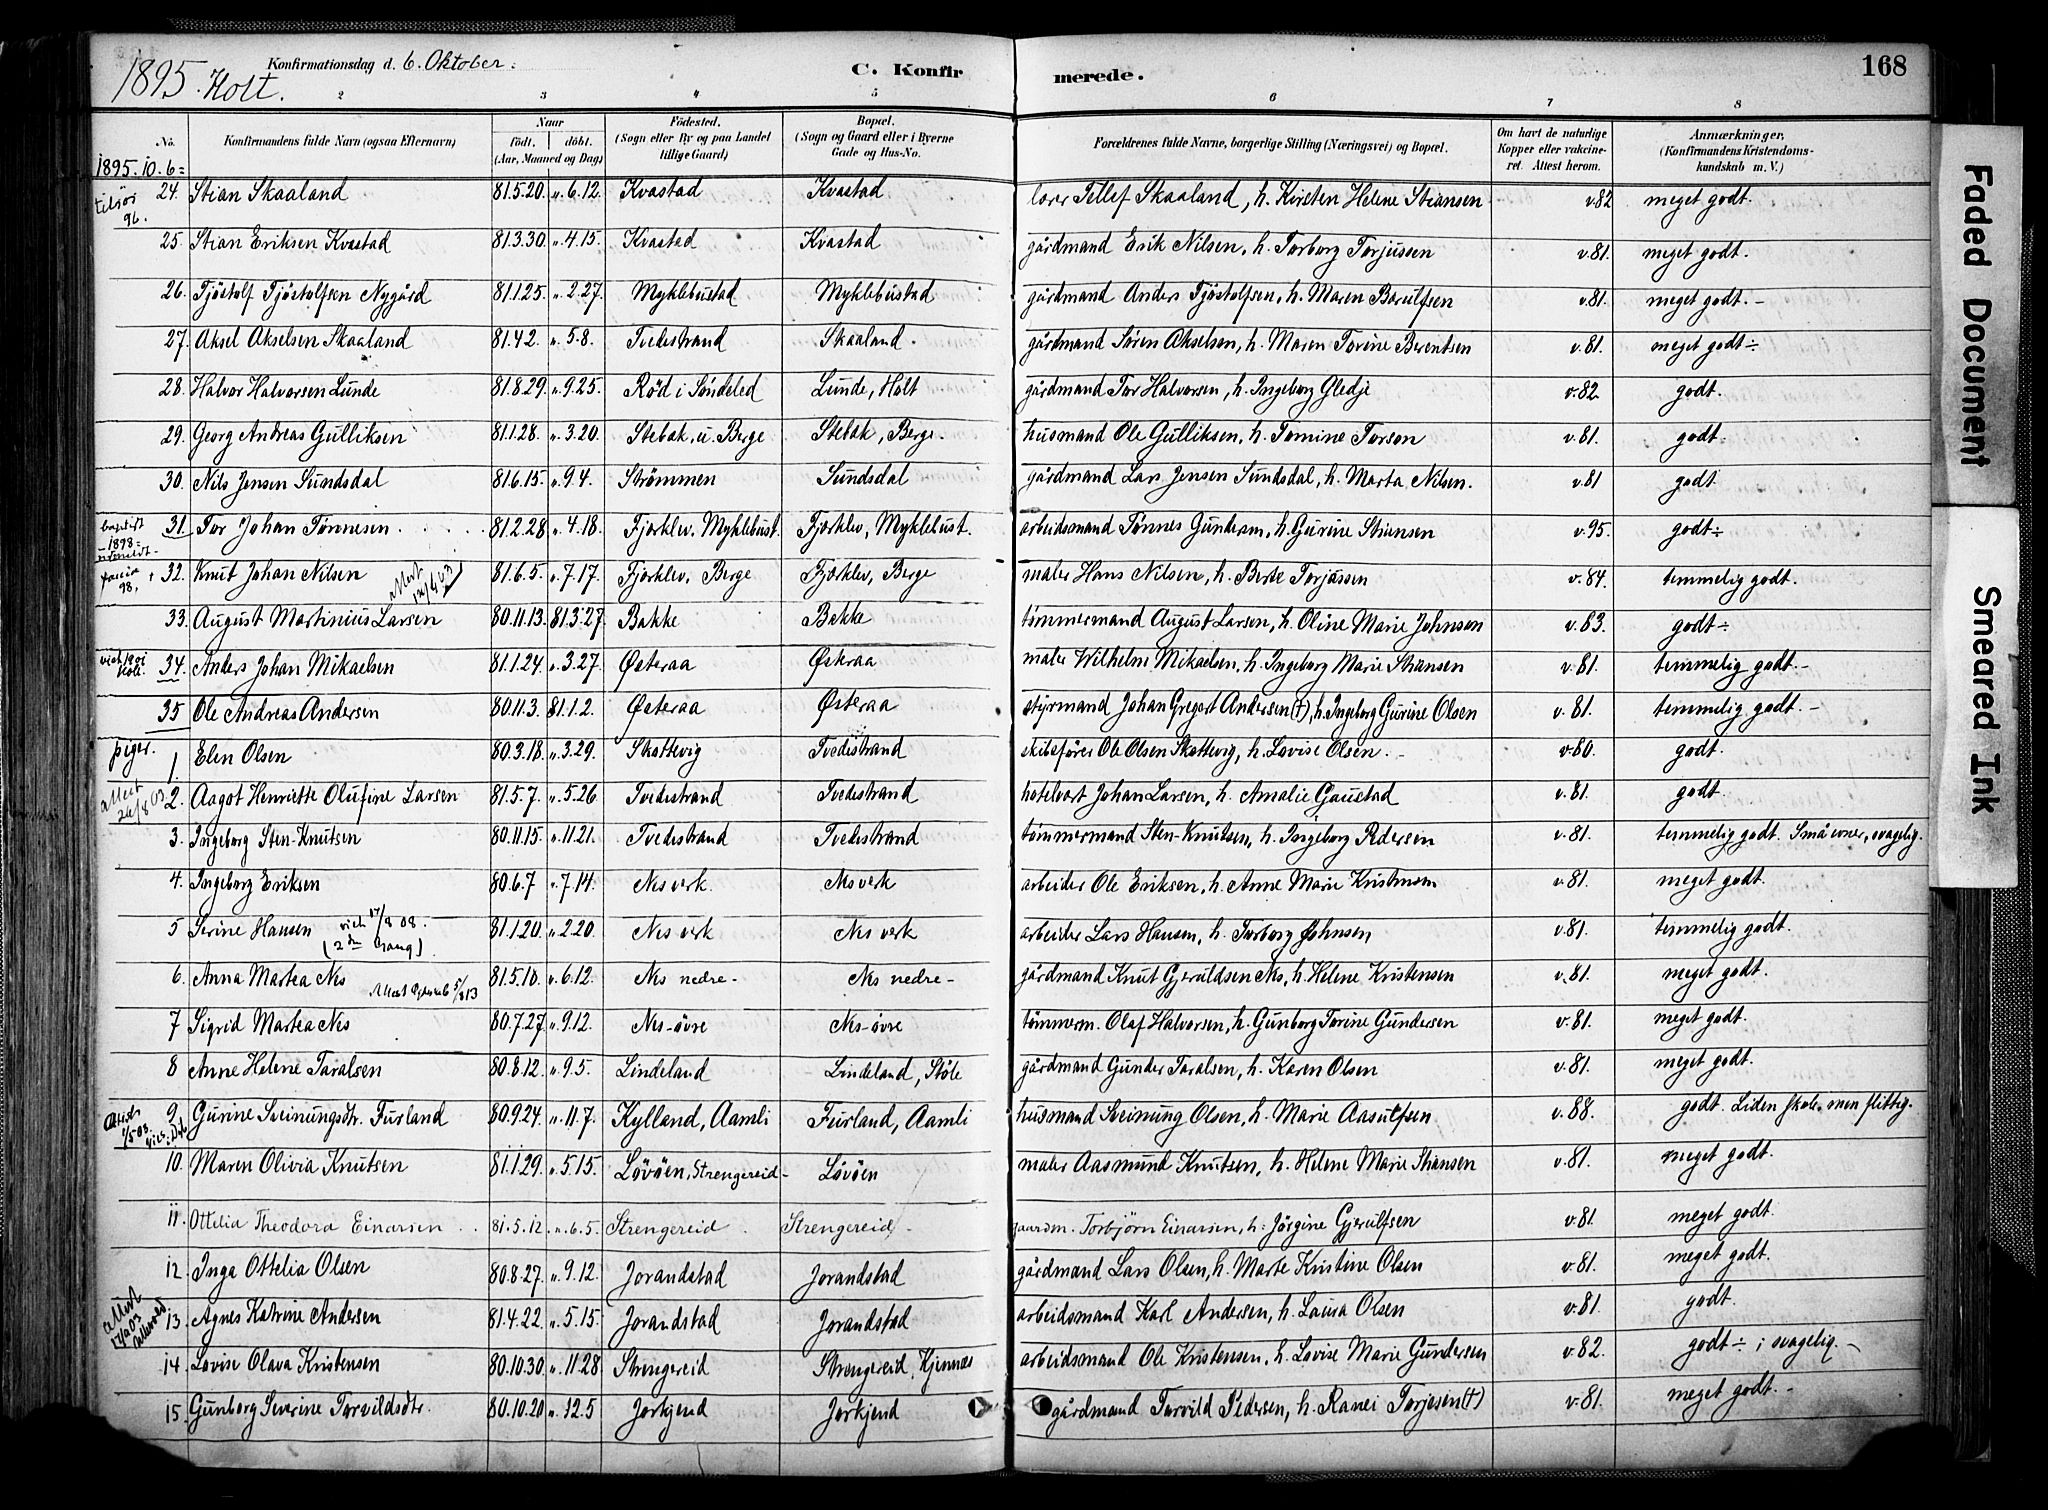 1895. Holt. Konfirmationsdag d. 6. Oktober. C. Konfirmerede. 168
2 3 4 5 6 7 8
No. Konfirmandens fulde Navn (ogsaa Efternavn) Naar født. døbt. (Aar, Maaned og Dag) Fødested. (Sogn eller By og paa Landet tillige Gaard) Bopæl. (Sogn og Gaard eller i Byerne Gade og Hus-No. Forældrenes fulde Navne, borgerlige Stilling (Næringsvei) og Bopæl. Om havt de naturlige Kopper eller vakcineret. Attest herom. Anmærkninger, (Konfirmandens Kristendomskundskab m. V.)
1895.10.6=
24. Stian Skaaland 81.5.20 „ 6.12. Kvastad Kvastad lærer Tellef Skaaland, h. Kirsten Helene Stiansen v.82 meget godt.
tilsjøs 96.
25. Stian Eriksen Kvastad 81.3.30 „ 4.15. Kvastad Kvastad gårdmand Erik Nilsen, h. Torborg Torjussen v.81. meget godt.
26. Tjöstolf Tjöstolfsen Nygård 81.1.25. „ 2.27. Myklebustad Myklebustad gårdmand Anders Tjöstolfsen, h. Maren Barulfsen v.81. meget godt. –
27. Aksel Akselsen Skaaland 81.4.2. „ 5.8. Tvedestrand Skaaland. gårdmand Sören Akselsen, h. Maren Torine Berentsen v.81. meget godt ÷
28. Halvor Halvorsen Lunde 81.8.29. „ 9.25. Röd i Söndeled Lunde, Holt gårdmand Tor Halvorsen, h. Ingeborg Gledje v.82. godt.
29. Georg Andreas Gulliksen 81.1.28. „ 3.20. Stebak, u. Berge Stebak, Berge. husmand Ole Gulliksen, h. Tomine Torsen v.81. godt
30. Nils Jensen Sundsdal 81.6.15. „ 9.4. Strømmen Sundsdal gårdmand Lars Jensen Sundsdal, h. Marta Nilsen. v.81 godt
31. Tor Johan Tönnesen 81.2.28 „ 4.18. Fjorklev, Myklebust. Fjorklev, Myklebust. arbeidsmand Tönnes Gundersen, h. Gurine Stiansen v.95. godt ÷
1898
32. Knut Johan Nilsen 81.6.5. „ 7.17. Fjorklev, Berge Fjorklev, Berge maler Hans Nilsen, h. Berte Torjussen v.84. temmelig godt.
98. attest
33. August Martinius Larsen 80.11.13. 81.3.27. Bakke Bakke tömmermand August Larsen, h. Oline Marie Johnsen v.83. godt ÷
34. Anders Johan Mikaelsen 81.1.24. „ 3.27. Østeraa Østeraa maler Wilhelm Mikaelsen, h. Ingeborg Marie Stiansen v.81. temmelig godt. –
35 Ole Andreas Andersen 80.11.3. 81.1.2. Østeraa Østeraa styrmand Johan Gregert Andersen (†), h. Ingeborg Gurine Olsen v.81. temmelig godt. –
piger.
1. Elen Olsen 80.3.18. „ 3.29. Skattevig Tvedestrand skibsförer Ole Olsen Skattevig, h. Lovise Olsen. – v.80. godt.
2. Aagot Henriette Olufine Larsen 81.5.7. „ 5.26 Tvedestrand Tvedestrand hotelvært Johan Larsen, h. Amalie Gaustad v.81. godt.
attest 26/8 03
3. Ingeborg Sten-Knutsen 80.11.15. „ 11.21. Tvedestrand Tvedestrand tömmermand Sten-Knutsen, h. Ingeborg Pedersen v.81. temmelig godt. Små evner, svagelig.
4. Ingeborg Eriksen 80.6.7 „ 7.14. Nes verk. Nes verk arbeider Ole Eriksen, h. Anne Marie Kristensen v.81. meget godt.
5 Serine Hansen 81.1.20. „ 2.20. Nes verk Nes verk arbeider Lars Hansen, h. Torborg Johnsen v.81. temmelig godt.
viet 17/8 08. (2den Gang).
6. Anna Martea Nes 81.5.10. „ 6.12. Nes nedre – Nes nedre – gårdmand Knut Gjeruldsen Nes, h. Helene Kristensen v.81. meget godt.
7 Sigrid Martea Nes 80.7.27. „ 9.12. Nes-övre Nes-övre tömmerm. Olaf Halvorsen, h. Gunborg Torine Gundersen v.81. meget godt.
8 Anne Helene Taralsen 80.8.12. „ 9.5. Lindeland Lindeland, Støle gårdmand Gunder Taralsen, h. Karen Olsen v.81. meget godt.
9. Gurine Sveinungsdtr. Furland 80.9.24. „ 11.7. Kylland, Aamli Furland, Aamli husmand Sveinung Olsen, h. Marie Aasulfsen v.88. godt. Liden skole, men flittig.
10. Maren Olivia Knutsen 81.1.29. „ 5.15. Lövöen, Strengereid – Lövöen maler Aasmund Knutsen, h. Helene Marie Stiansen v.81. meget godt.
11. Ottelia Theodora Einarsen 81.5.12. „ 6.5. Strengereid Strengereid gaardm. Torbjørn Einarsen, h. Jörgine Gjerulfsen v.81. meget godt.
12. Inga Ottelia Olsen 80.8.27. „ 9.12. Jorandstad Jorandstad gårdmand Lars Olsen, h. Marte Kristine Olsen v.81. meget godt.
13. Agnes Katrine Andersen 81.4.22. „ 5.15. Jorandstad Jorandstad arbeidsmand Karl Andersen, h. Laura Olsen v.81. godt.
attest
14. Lovise Olava Kristensen 80.10.30 „ 11.28 Strengereid Strengereid, Kjennæs arbeidsmand Ole Kristensen, h. Lovise Marie Gundersen v.82. godt ÷ ; svagelig. –
15. Gunborg Severine Torvildsdtr. 80.10.20 „ 12.5 Jorkjend Jorkjend gårdmand Torvild Pedersen, h. Ranei Torjesen (†) v.81. meget godt. –
Faded Document
Smeared Ink